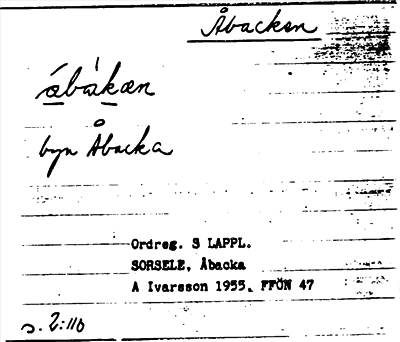 Åbacken
åbàkæn
byn Åbacka
Ordreg. S LAPPL.
SORSELE, Åbacka
A Ivarsson 1955. FFÖN 47
s. 2:116